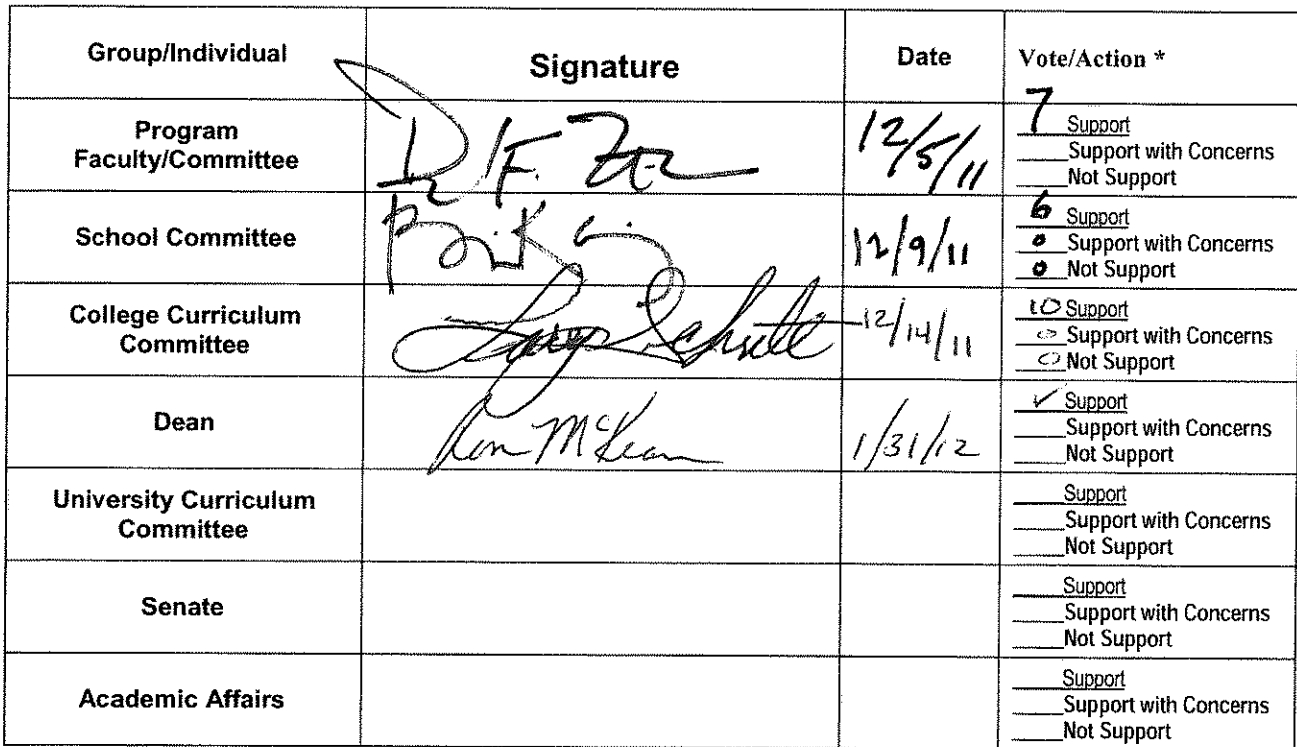 Group/Individual Signature Date Vote/Action *
Program Faculty/Committee 12/5/11
7 Support
____Support with Concerns
____Not Support
School Committee 12/9/11
6 Support
0 Support with Concerns
0 Not Support
College Curriculum Committee 12/14/11
10 Support
0 Support with Concerns
0 Not Support
Dean Ron McKean 1/31/12
✓ Support
____Support with Concerns
____Not Support
University Curriculum Committee
____Support
____Support with Concerns
____Not Support
Senate
____Support
____Support with Concerns
____Not Support
Academic Affairs
____Support
____Support with Concerns
____Not Support